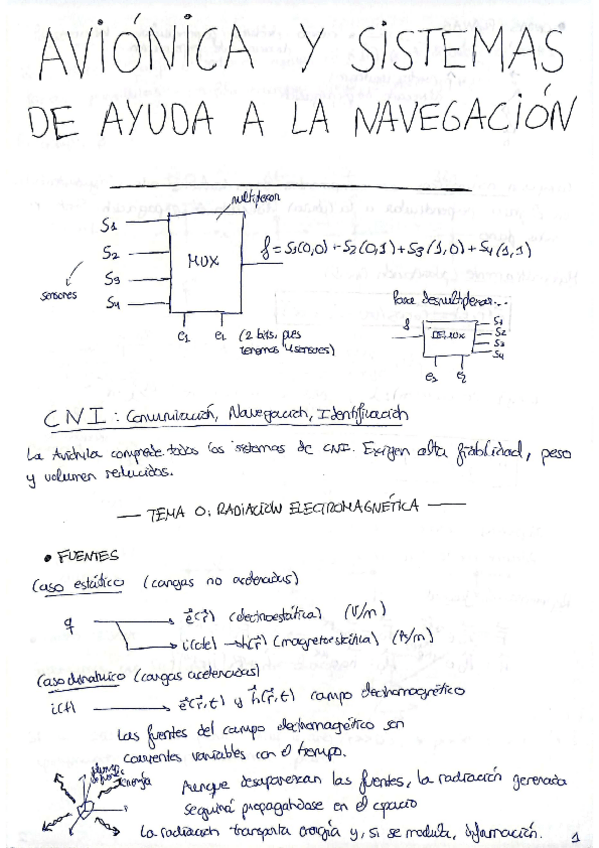 AVIÓNICA Y SISTEMAS
DE AYUDA A LA NAVEGACIÓN
multiplexor
S1
S2
S3
S4
sensores
MUX
f = S1(0,0) + S2(0,1) + S3(1,0) + S4(1,1)
e1 e1 (2 bits, pues
tenemos 4 sensores)
Para desmultiplexar...
f
DEMUX
S1
S2
S3
S4
e1 e2
CNI: Comunicación, Navegación, Identificación
La Aviónica comprende todos los sistemas de CNI. Exigen alta fiabilidad, peso
y volumen reducidos.
— TEMA 0: RADIACIÓN ELECTROMAGNÉTICA —
• FUENTES
Caso estático (cargas no aceleradas)
q
e⃗(r⃗) (electroestática) (V/m)
i(dc) → h(r⃗) (magnetoestática) (A/m)
Caso dinámico (cargas aceleradas)
i(t) → e⃗(r⃗,t) y h⃗(r⃗,t) campo electromagnético
Las fuentes del campo electromagnético son
corrientes variables con el tiempo.
energía
Aunque desaparezcan las fuentes, la radiación generada
seguirá propagándose en el espacio
La radiación transporta energía y, si se modula, información.
1